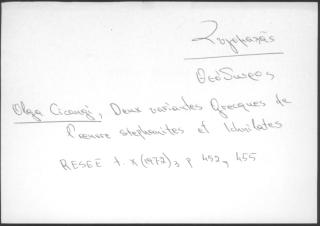 Ζυγομαλᾶς
Θεόδωρος
Olga Cicanci, Deux variantes Grecques de
l'œuvre stephanites et Ichnilates
RESEE t. X (1972), p 452, 455